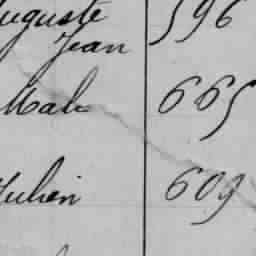 Auguste 596
Jean
Male 665
Julien 609